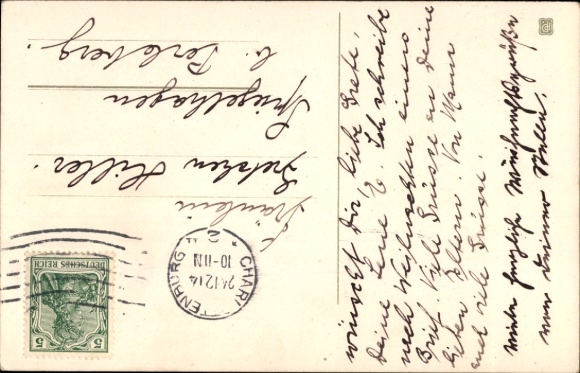 Fräulein
Gretchen Hiller.
Spiegelhagen
b. Perleberg.
DEUTSCHES REICH
5
5
CHARLOTTENBURG
24.12.14
10-11N
2
wünscht Dir, liebe Grete,
Deine Lene H. Ich schreibe
nach Weihnachten einen
Brief. Viele Grüsse an Deine
lieben Eltern. Von Mama
auch viele Grüsse.
herzliche Weihnachtsgrüße
von Deiner